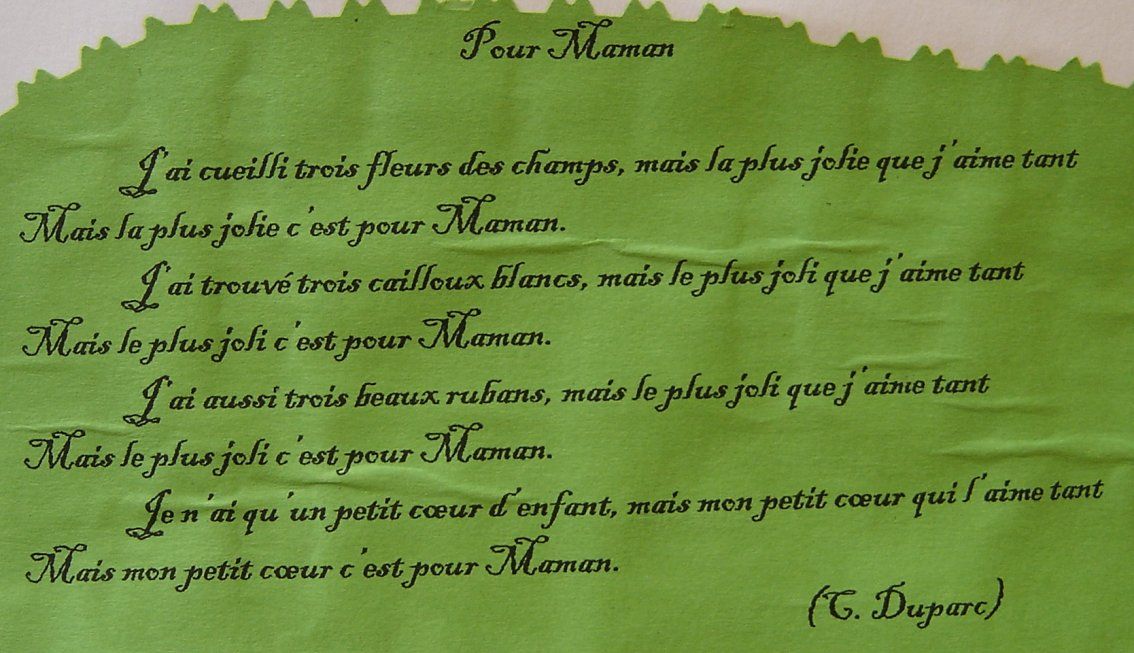 Pour Maman
J'ai cueilli trois fleurs des champs, mais la plus jolie que j'aime tant
Mais la plus jolie c'est pour Maman.
J'ai trouvé trois cailloux blancs, mais le plus joli que j'aime tant
Mais le plus joli c'est pour Maman.
J'ai aussi trois beaux rubans, mais le plus joli que j'aime tant
Mais le plus joli c'est pour Maman.
Je n'ai qu'un petit cœur d'enfant, mais mon petit cœur qui l'aime tant
Mais mon petit cœur c'est pour Maman.
(C. Duparc)